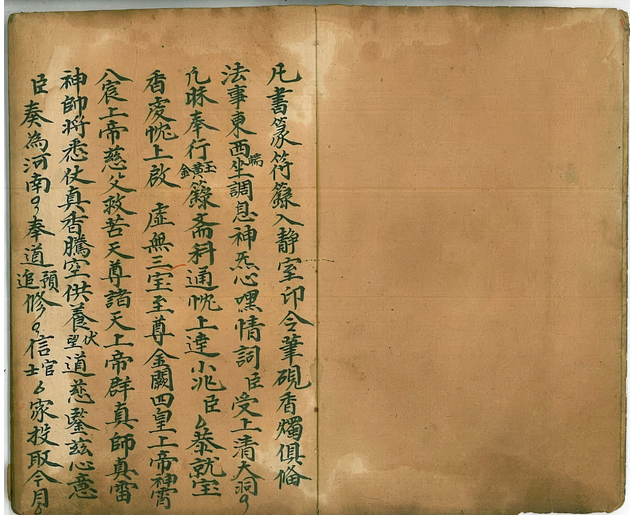 凡書篆符籙入靜室印令筆硯香燭俱偹
法事東西端坐調息神炁心嘿情詞臣受上清大洞
凣昧奉行玉黃金籙斋科通忱上達小兆臣厶恭就宝
香虔忱上啟 虛無三宝至尊金闕四皇上帝神霄
八宸上帝慈父救苦天尊諸天上帝群真師真雷
神師将悉仗真香騰空供養伏望道慈鑒茲心意
臣奏為河南奉道預追修信官士厶家投取今月